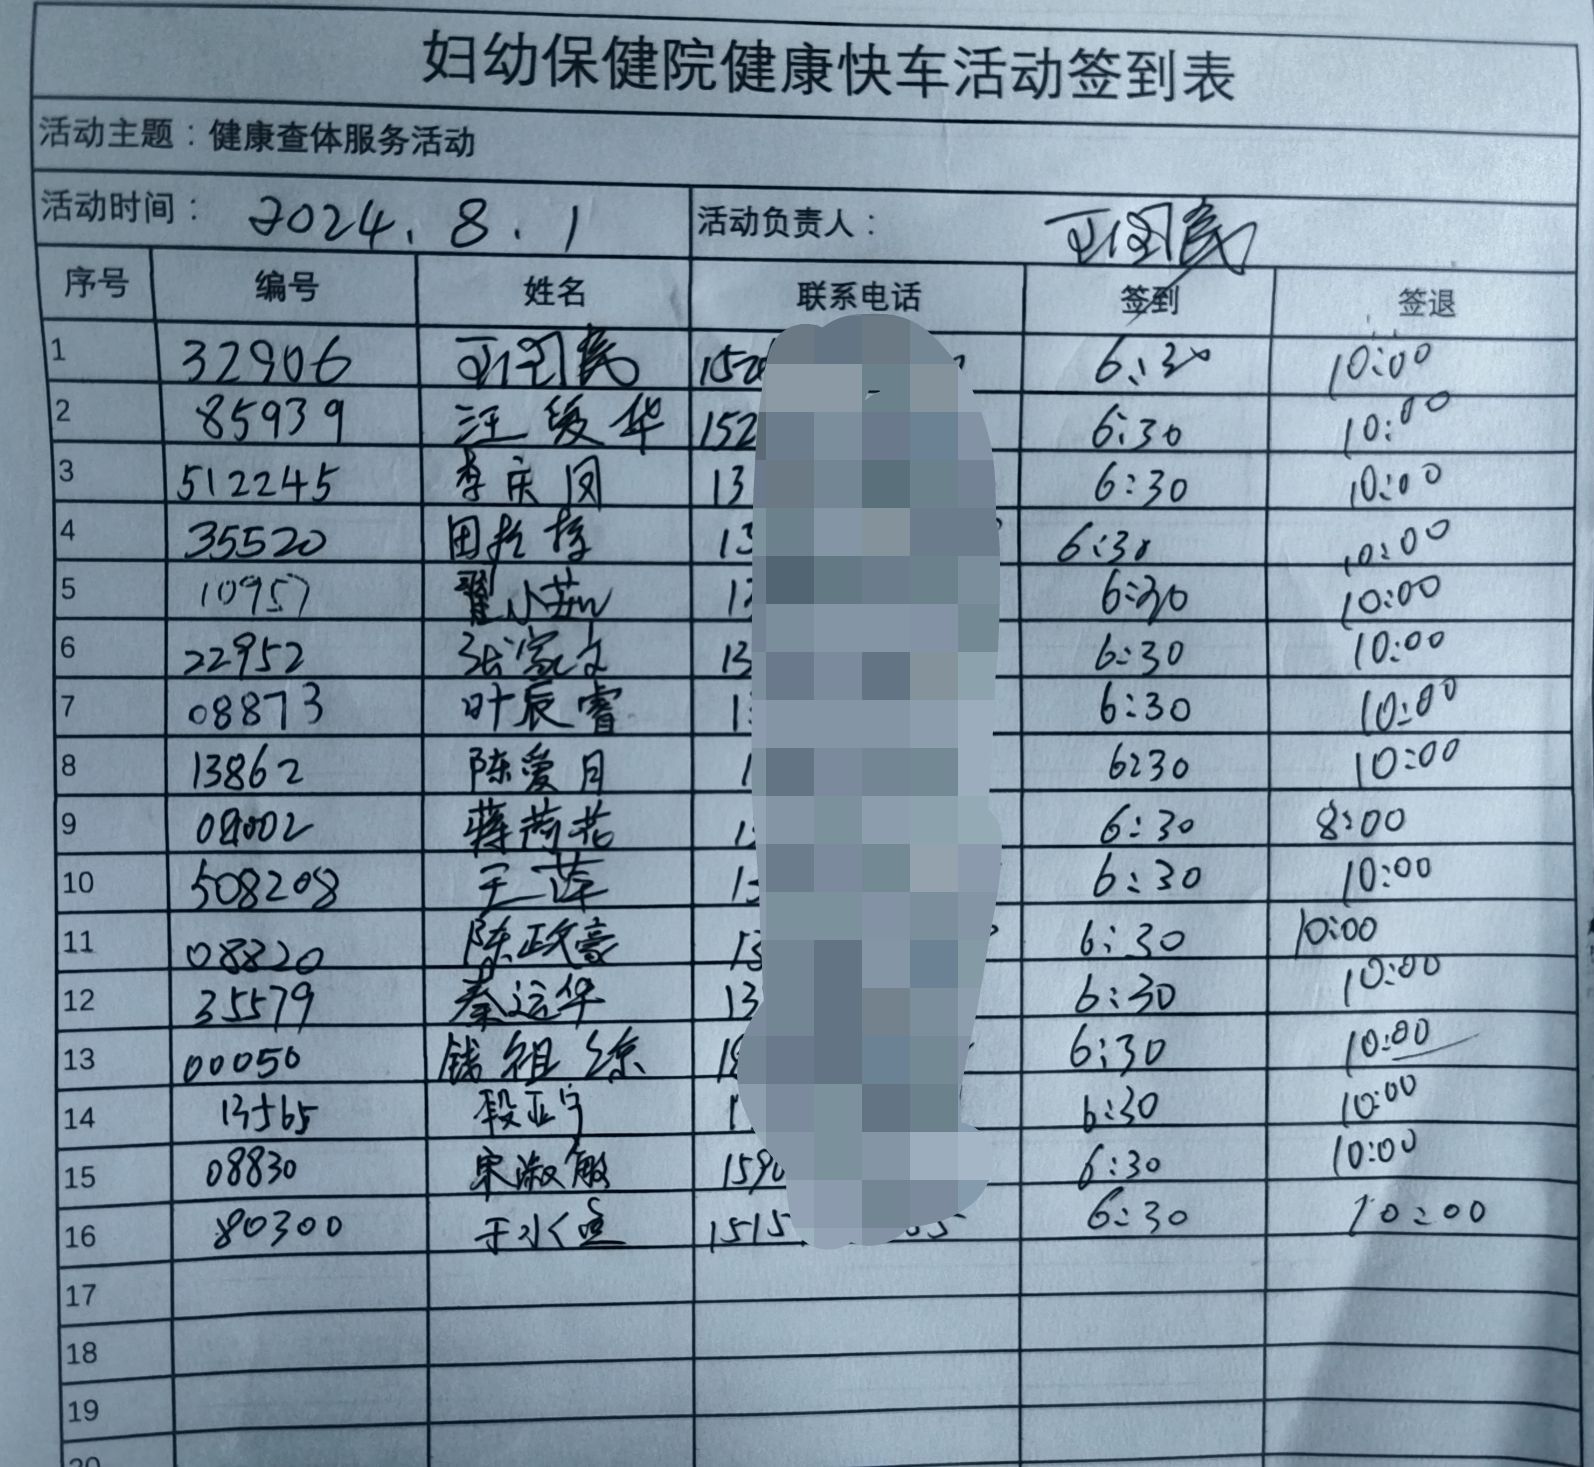 妇幼保健院健康快车活动签到表
活动主题：健康查体服务活动
活动时间： 2024.8.1 活动负责人：
序号 编号 姓名 联系电话 签到 签退
1 32906 152 6:30 10:00
2 85939 汪爱华 152 6:30 10:00
3 512245 李庆凤 13 6:30 10:00
4 35520 13 6:30 10:00
5 10957 翟小茹 1 6:30 10:00
6 22952 张家文 13 6:30 10:00
7 08873 叶辰睿 1 6:30 10:00
8 13862 陈爱月 1 6:30 10:00
9 蒋荷花 1 6:30 8:00
10 508208 王莲 1 6:30 10:00
11 08820 陈政豪 13 6:30 10:00
12 35579 秦运华 13 6:30 10:00
13 00050 钱祖琼 1 6:30 10:00
14 13565 段亚宁 1 6:30 10:00
15 08830 宋淑敏 1590 6:30 10:00
16 80300 1515 6:30 10:00
17
18
19
20